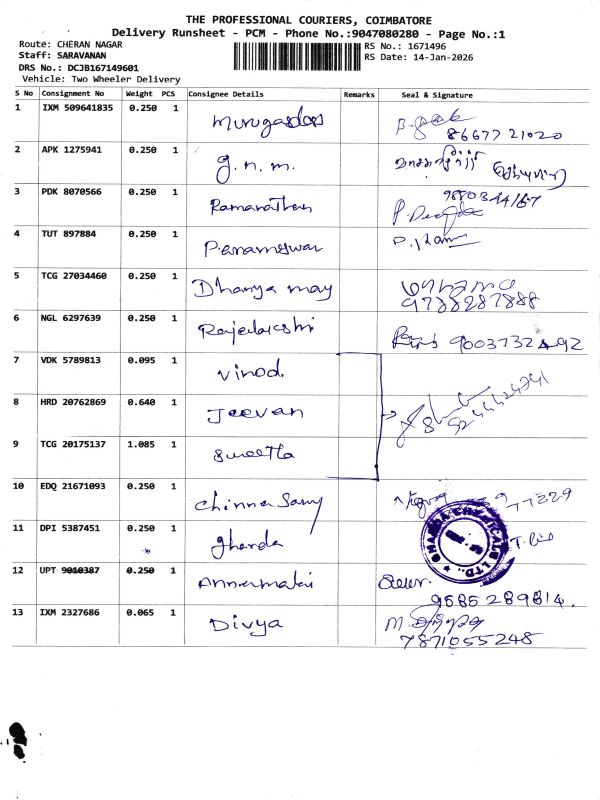 THE PROFESSIONAL COURIERS, COIMBATORE
Delivery Runsheet - PCM - Phone No.:9047080280 - Page No.:1
Route: CHERAN NAGAR
RS No.: 1671496
Staff: SARAVANAN
RS Date: 14-Jan-2026
DRS No.: DCJB167149601
Vehicle: Two Wheeler Delivery
S No Consignment No Weight PCS Consignee Details Remarks Seal & Signature
1 IXM 509641835 0.250 1 Murugadoss
8667721020
2 APK 1275941 0.250 1 g.n.m.
3 PDK 8070566 0.250 1 Ramanathan
9880344167
4 TUT 897884 0.250 1 Parameswar
5 TCG 27034460 0.250 1 Dhanya may
9788287888
6 NGL 6297639 0.250 1 Rajelakshi
7 VDK 5789813 0.095 1 Vinod.
8 HRD 20762869 0.640 1 Jeevan
9 TCG 20175137 1.085 1 Sweetla
10 EDQ 21671093 0.250 1 Chinna Samy
77229
11 DPI 5387451 0.250 1 Ghanda
12 UPT 9010387 0.250 1 Annamalai
9585289814.
13 IXM 2327686 0.065 1 Divya
7871055248